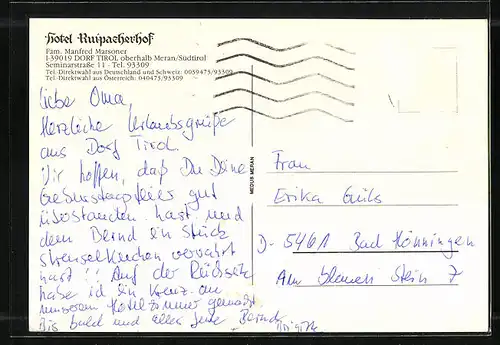 Hotel Ruipacherhof
Fam. Manfred Matsoner
I-39019 DORF TIROL oberhalb Meran/Südtirol
Seminarstraße 11 - Tel. 93309
Tel-Direktwahl aus Deutschland und Schweiz: 0039473/93309
Tel-Direktwahl aus Österreich: 040473/93309
Liebe Oma,
Herzliche Urlaubsgrüße
aus Dorf Tirol.
Wir hoffen, daß Du Deine
Geburtstagsfeier gut
überstanden hast und
dem Bernd ein Stück
Streuselkuchen verwahrt
hast!! Auf der Rückseite
habe ich ein Kreuz an
unserem Hotelzimmer gemacht
Bis bald und alles Gute Bernd
Brigitte
MEDUS MERAN
Frau
Erika
D-5461 Bad Hönningen
Am blauen Stein 7